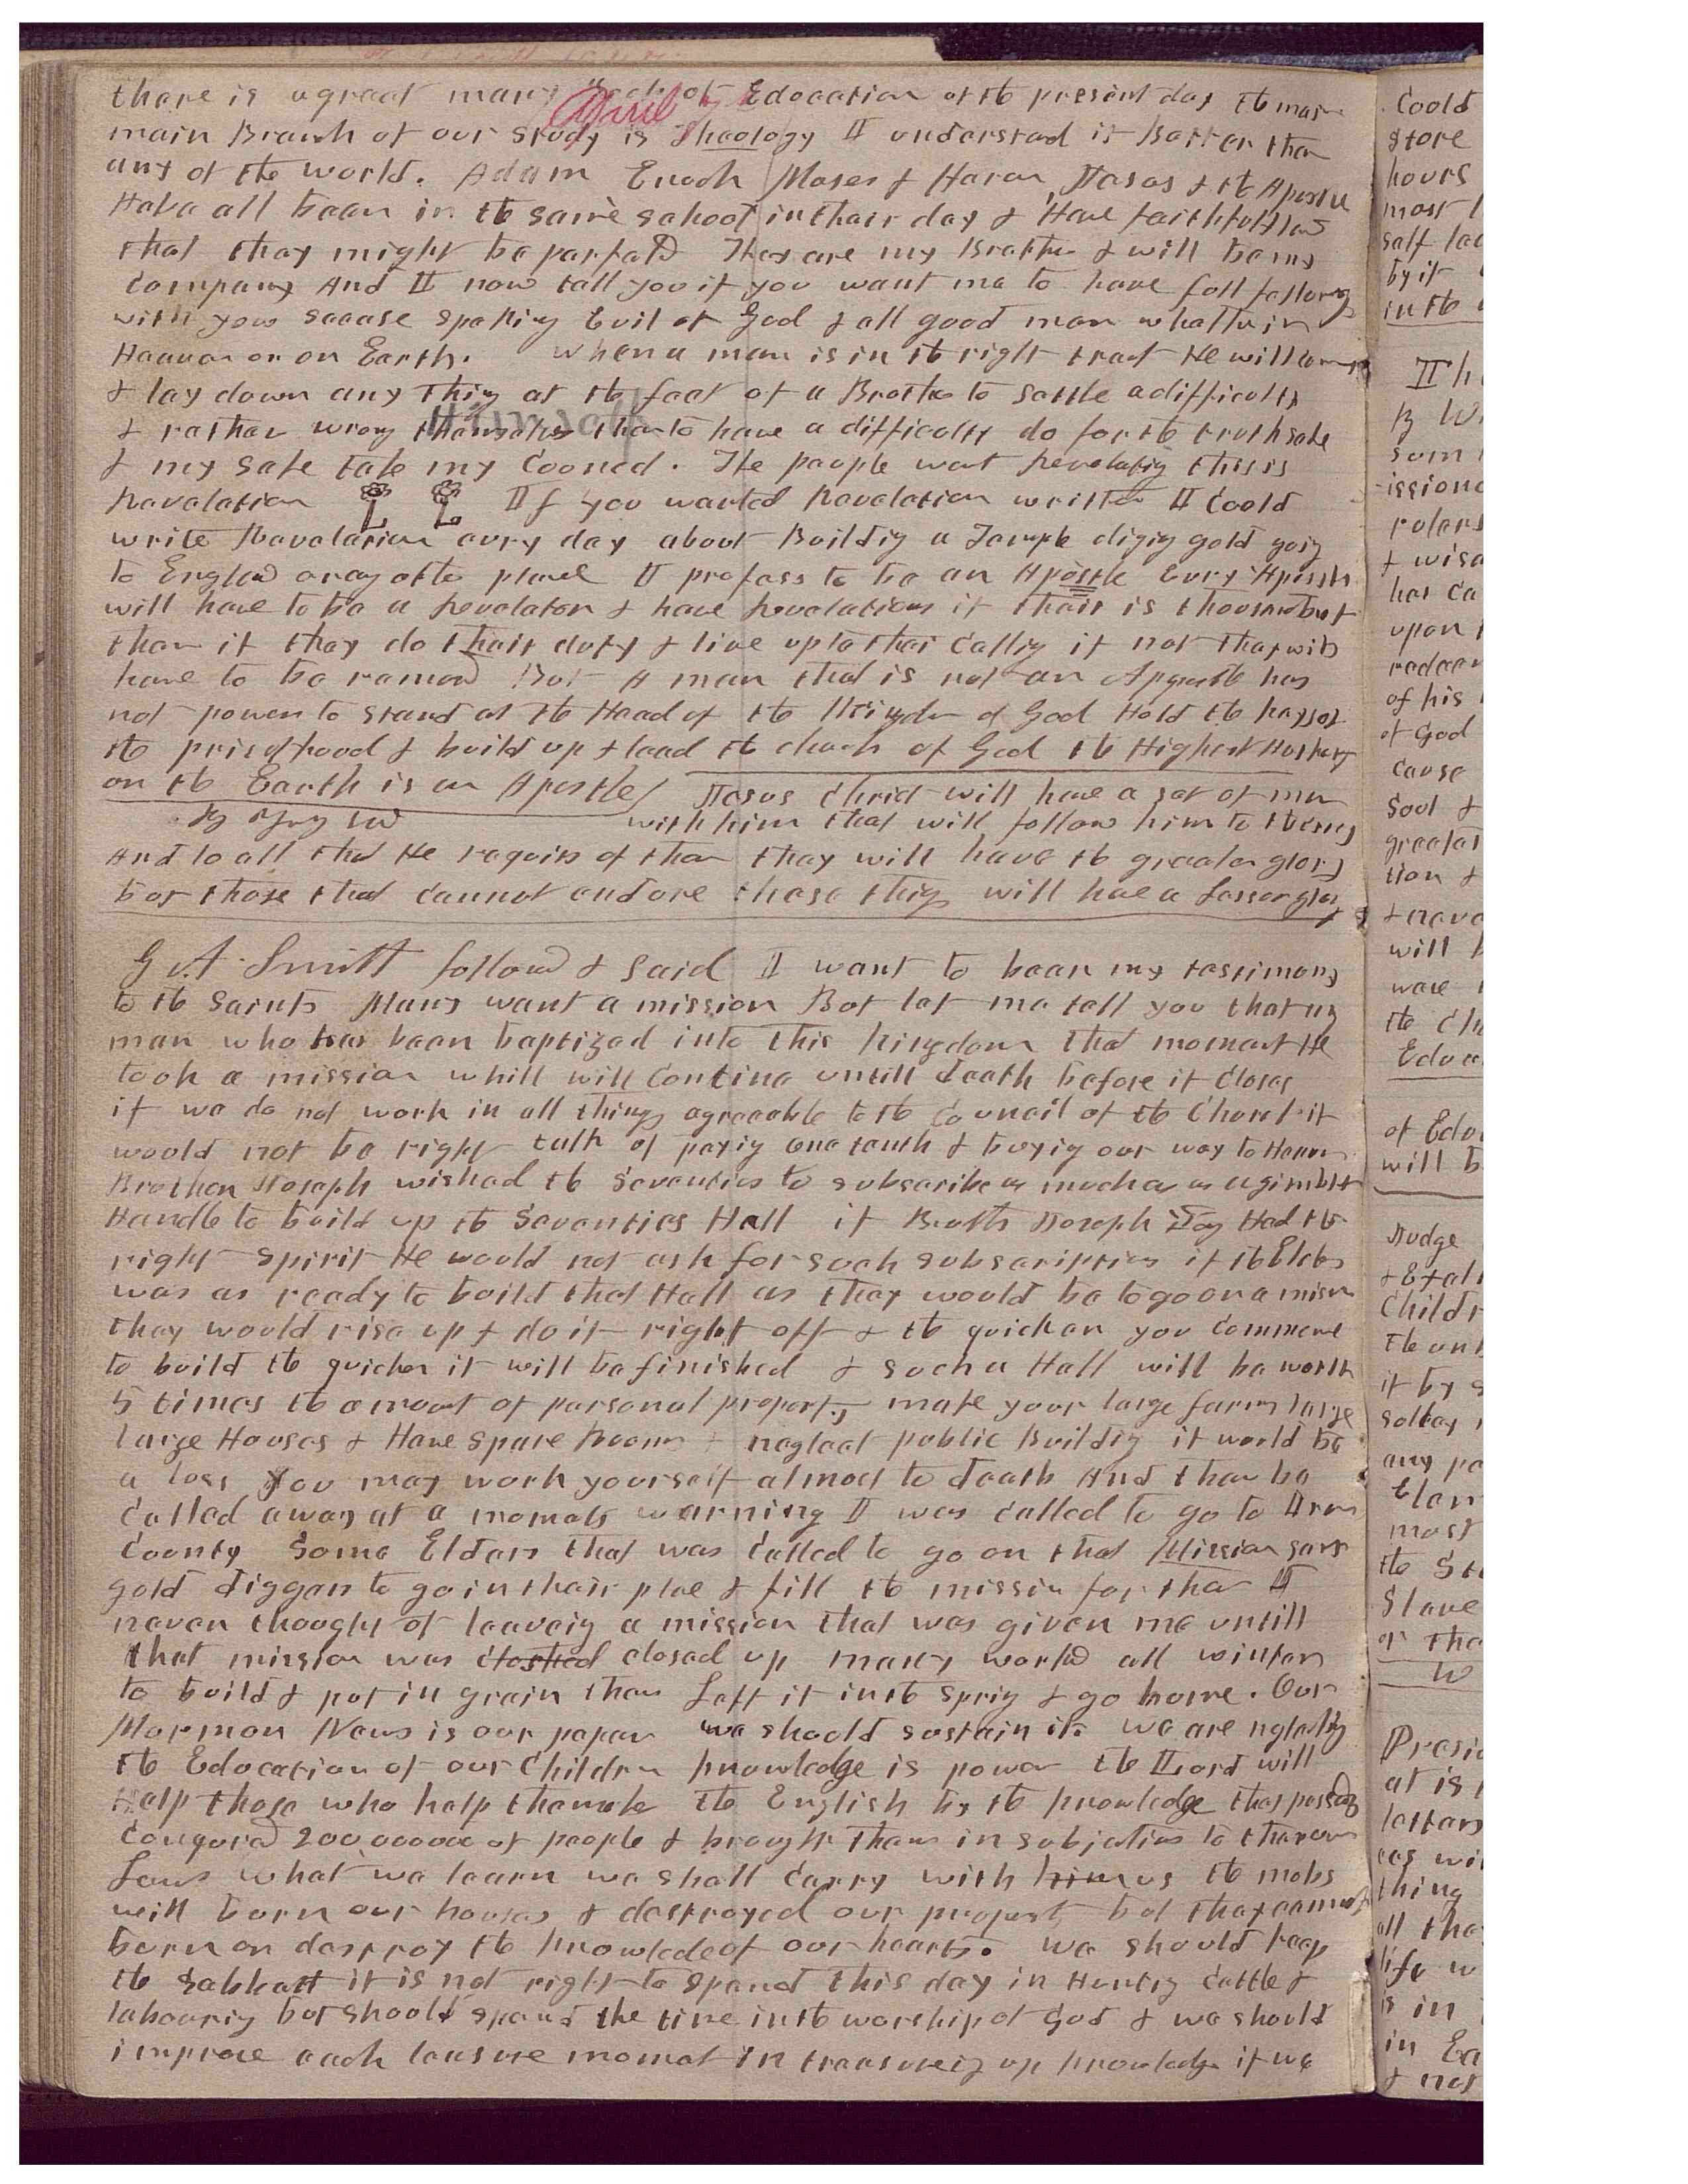 there is a great many of Edocation at the present day the main
main Branch of our study is Theology I understand it Better than
any of the world. Adam Enoch Moses & Haron Jesus & the Apostle
Have all been in the same school in their day & Have
that they might be perfect They are my Brother & will be my
Company And I now tell you if you want me to have full
with you sease speaking Evil of God & all good men whether in
Heaven or on Earth. When a man is in the right track He will come
& lay down any thing at the feet of a Brother to settle a difficulty
& rather wrong themselves than to have a difficulty do for the truth sake
Himself
April
& my sake take my Councel. The people want Revelation this is
Revelation If you wanted Revelation written I could
write Revelation evry day about Building a Temple diging gold going
to England or any other place I profess to be an Apostle Evry Apostle
will have to be a Revelator & have Revelations if their is thousand but
them if they do their duty & live up to their Calling if not they will
have to be removed But A man that is not an Apostle has
not power to stand at the Head of the Kingdom of God Hold the keys of
the priesthood & build up & lead the church of God the Highest
on the Earth is an Apostle / Jesus Christ will have a set of men
with him that will follow him to
And to all that He requires of them they will have the greater glory
but those that cannot endure these things will have a Lesser glory
G. A. Smith followed & said I want to bear my testimony
to the Saints Many want a mission But let me tell you that any
man who has been baptized into this kingdom that moment He
took a mission which will Contine untill death before it closes
if we do not work in all things agreeable to the Council of the Church it
would not be right talk of paying one tenth & buying our way to Heaven
Brother Joseph wished the Seventies to subscribe as much as as a gimblet
Handle to build up the Seventies Hall if Broth Joseph Had the
right Spirit He would not ask for such subscription if the Elders
was as ready to build that Hall as they would be to go on a mission
they would rise up & do it right off & the quicker you commence
to build the quicker it will be finished & such a Hall will be worth
5 times the amount of personal property make your large farms large
large Houses & Have spare Rooms & neglect public Building it would be
a loss You may work yourself almost to death And then be
Called away at a moments warning I was called to go to Iron
County Some Elders that was Called to go on that Mission
gold diggers to go in their place & fill the mission for them I
never thought of leaveing a mission that was given me untill
that mission was closed up many worked all winter
to build & put in grain then Left it in the spring & go home. Our
Mormon News is our paper we should sustain it. we are neglecting
the Edocation of our Children knowledge is power the Lord will
Help those who help themselves the English by the knowledge they possess
Conquered 200,000000 of people & brought them in subjection to their own
Laws what we learn we shall Carry with him us the mobs
will burn our houses & destroyed our property but they cannot
burn or destroy the knowledge of our hearts. we should keep
the Sabbath it is not right to spend this day in Hunting Cattle &
labouring but should spend the time in the worship of God & we should
improve each leasure moment in treasureing up knowledge if we
Coold
store
hours
most
self
by it
in the
I h
B W
som
issione
rolers
& wisd
has ca
upon
redeem
of his
of God
Cause
Soul &
greatest
tion &
& neve
will b
ware
the ch
Educ
of Edu
will b
Judge
& Exal
Childr
the
it by
any pe
most
the St
Slave
or the
W
Presid
at is
letters
thing
all tha
life w
is in
in Ea
& not